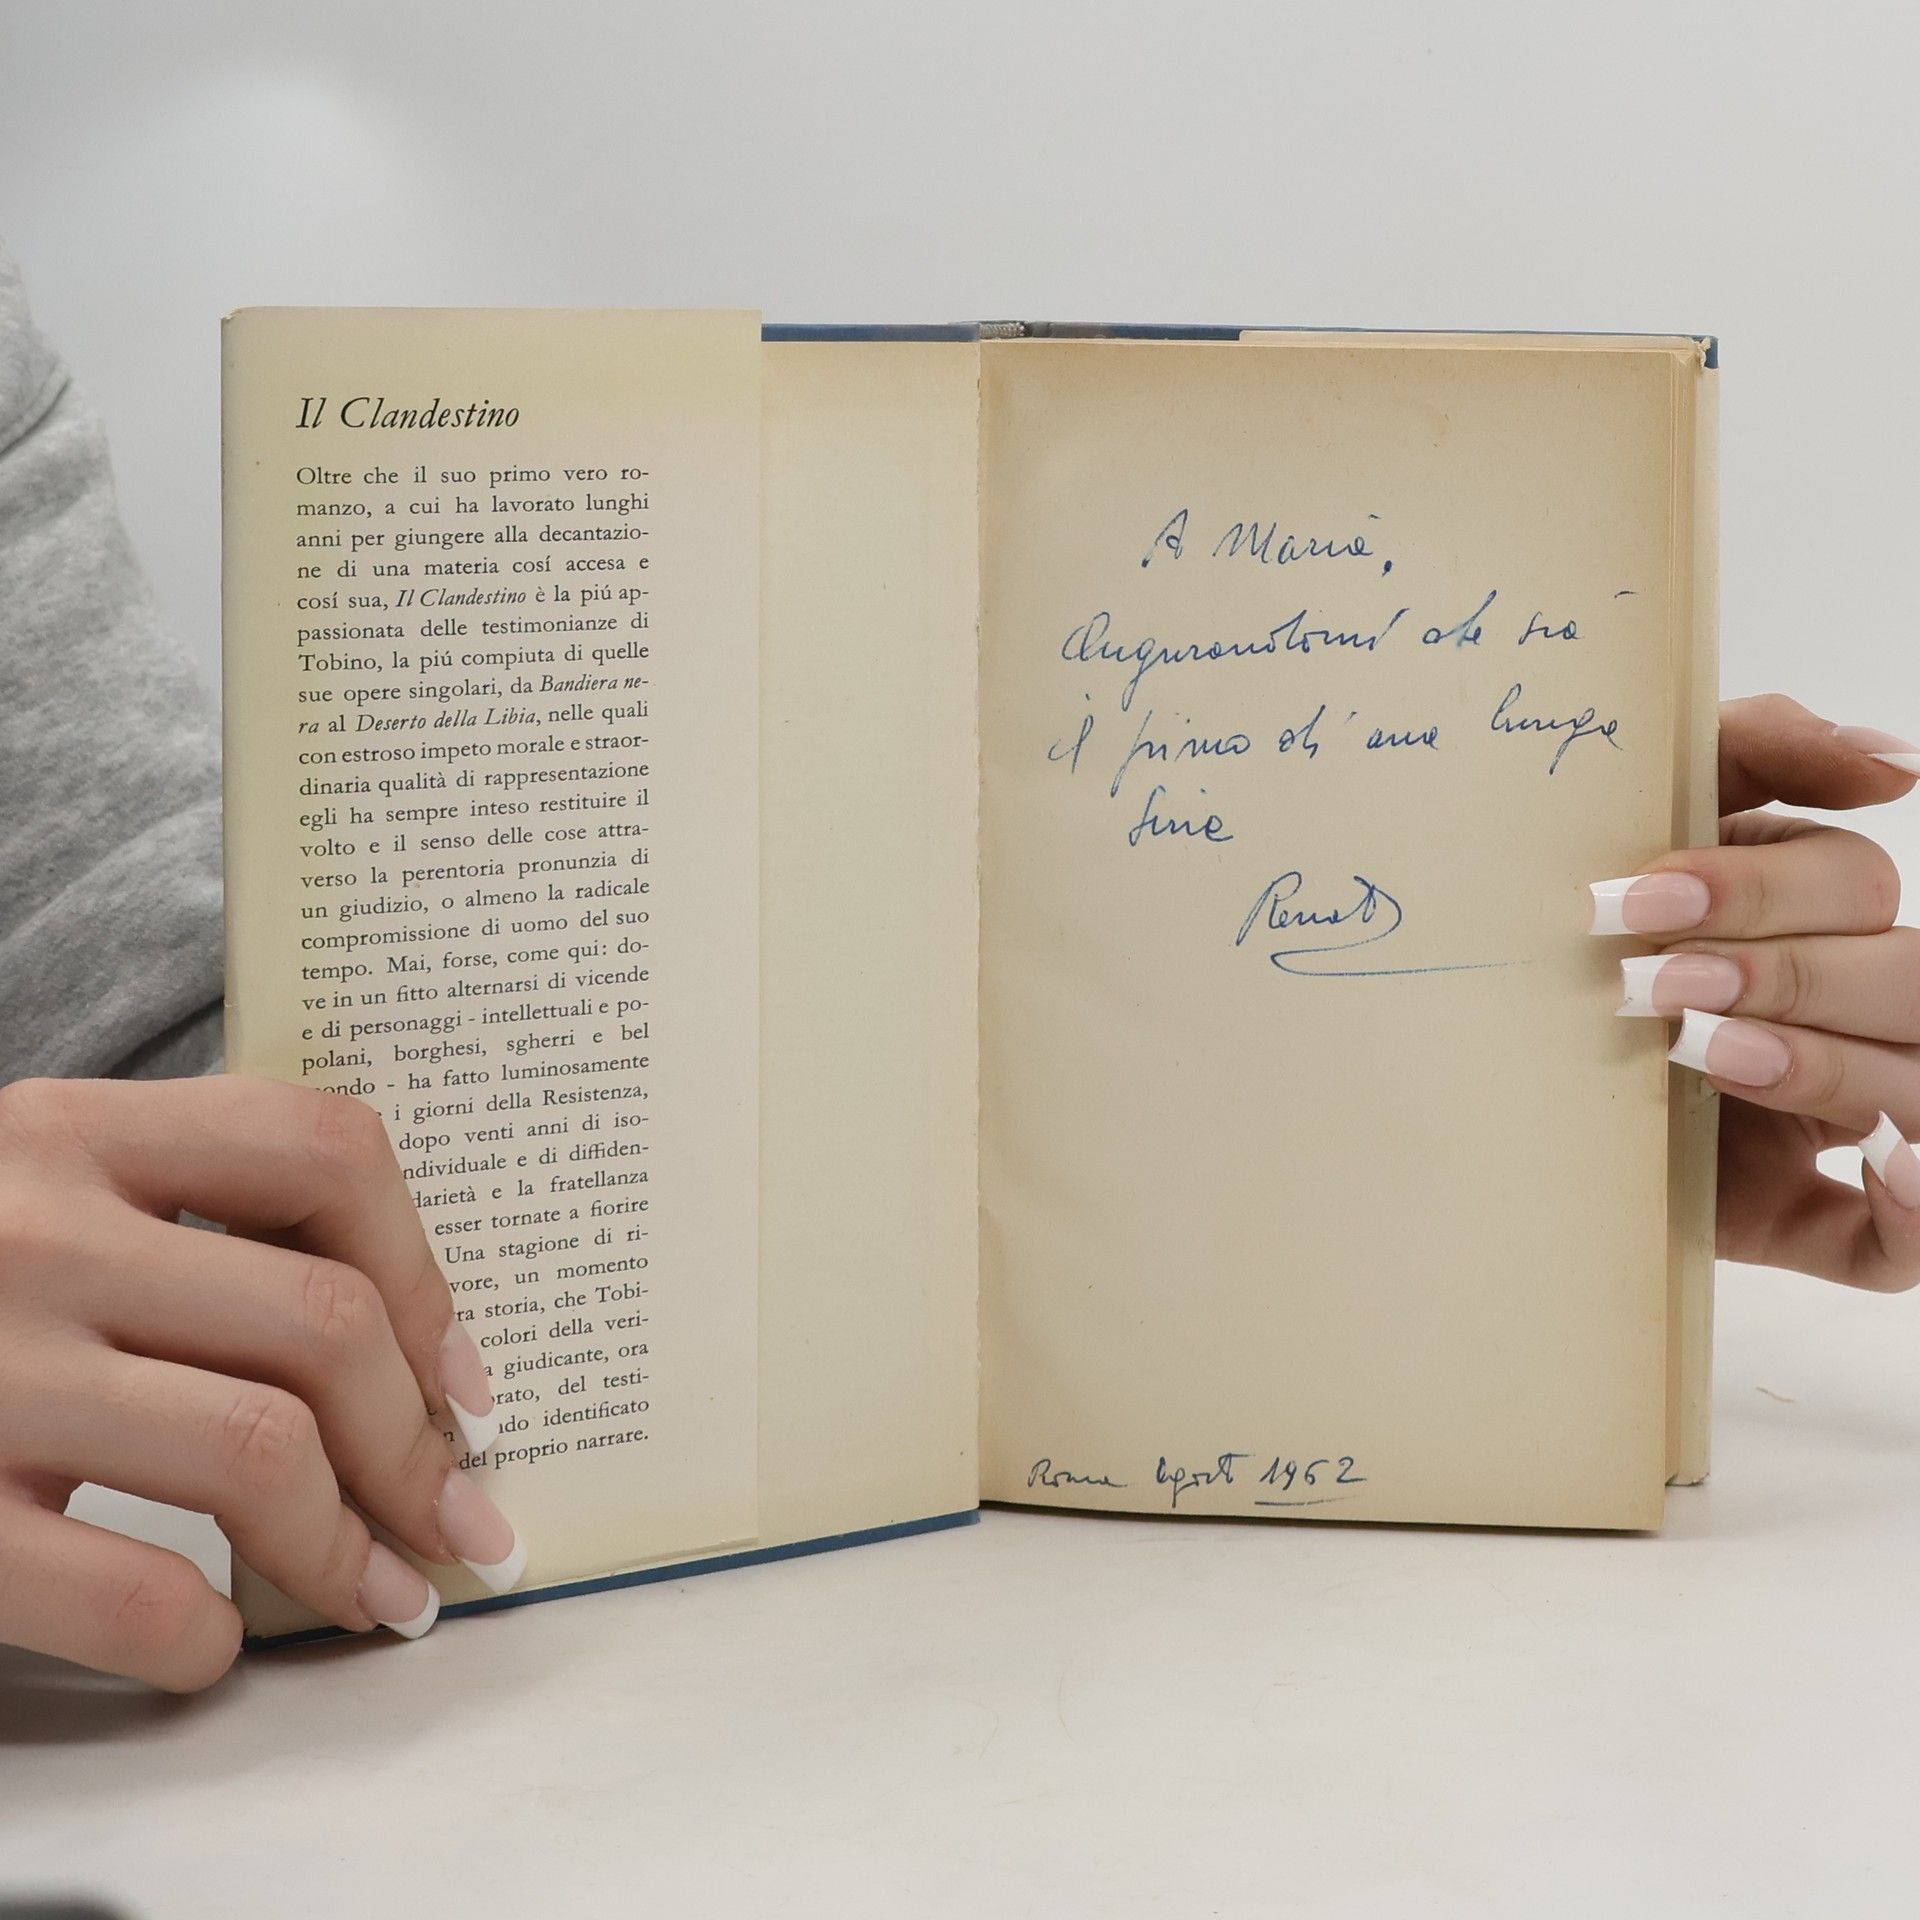 Il Clandestino
Oltre che il suo primo vero ro-
manzo, a cui ha lavorato lunghi
anni per giungere alla decantazio-
ne di una materia cosí accesa e
cosí sua, Il Clandestino è la piú ap-
passionata delle testimonianze di
Tobino, la piú compiuta di quelle
sue opere singolari, da Bandiera ne-
ra al Deserto della Libia, nelle quali
con estroso impeto morale e straor-
dinaria qualità di rappresentazione
egli ha sempre inteso restituire il
volto e il senso delle cose attra-
verso la perentoria pronunzia di
un giudizio, o almeno la radicale
compromissione di uomo del suo
tempo. Mai, forse, come qui: do-
ve in un fitto alternarsi di vicende
e di personaggi - intellettuali e po-
polani, borghesi, sgherri e bel
ondo - ha fatto luminosamente
i giorni della Resistenza,
dopo venti anni di iso-
ndividuale e di diffiden-
darietà e la fratellanza
esser tornate a fiorire
Una stagione di ri-
vore, un momento
ra storia, che Tobi-
colori della veri-
a giudicante, ora
orato, del testi-
do identificato
del proprio narrare.
A Maria,
Augurandomi che sia
il primo di una lunga
serie
Renato
Roma Agosto 1962